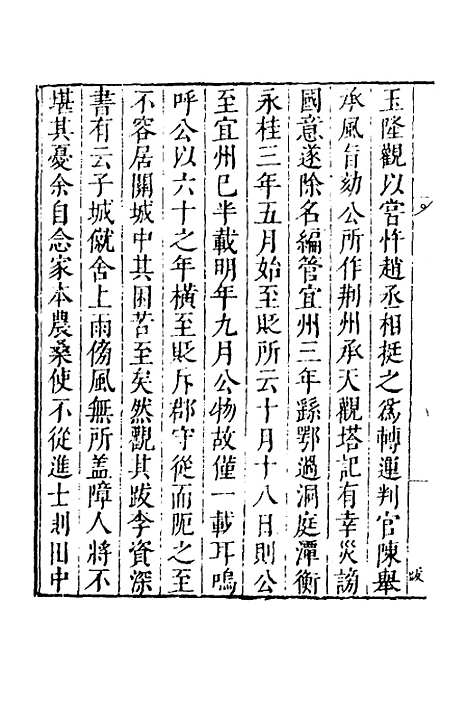 玉隆觀以嘗忤趙丞相挺之為轉運判官陳舉
承風旨劾公所作荆州承天觀塔記有幸災謗
國意遂除名編管宜州三年繇鄂過洞庭潭衡
永桂三年五月始至貶所云十月十八日則公
至宜州已半載明年九月公物故僅一載耳嗚
呼公以六十之年橫至貶斥郡守從而阨之至
不容居關城中其困苦至矣然觀其跋李資深
書有云子城僦舍上雨傍風無所蓋障人將不
堪其憂余自念家本農桑使不從進士則田中